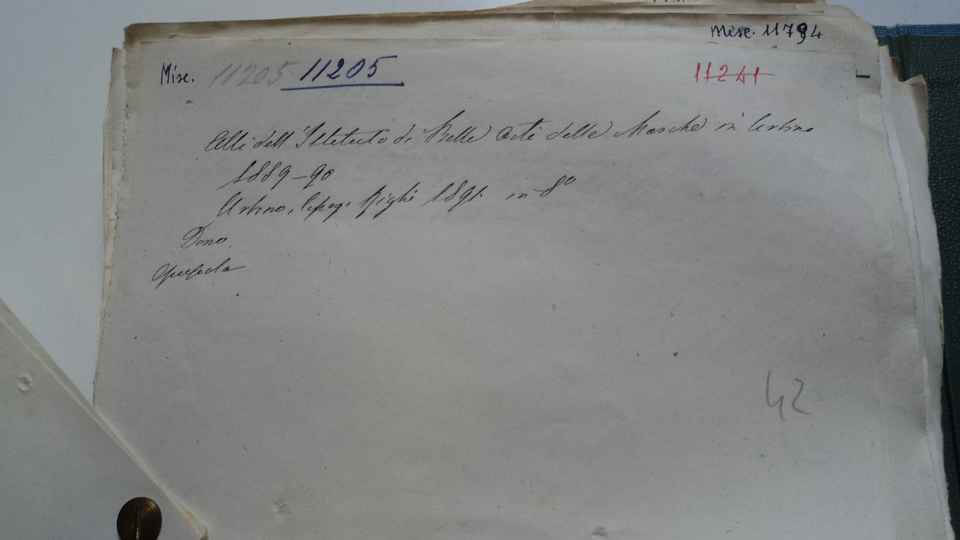 Misc. 11794
Misc. 11205 11205 11241
Atti dell'Istituto di Belle Arti delle Marche in Urbino
1889-90
Urbino, Righi 1891. in-8°
Dono.
42